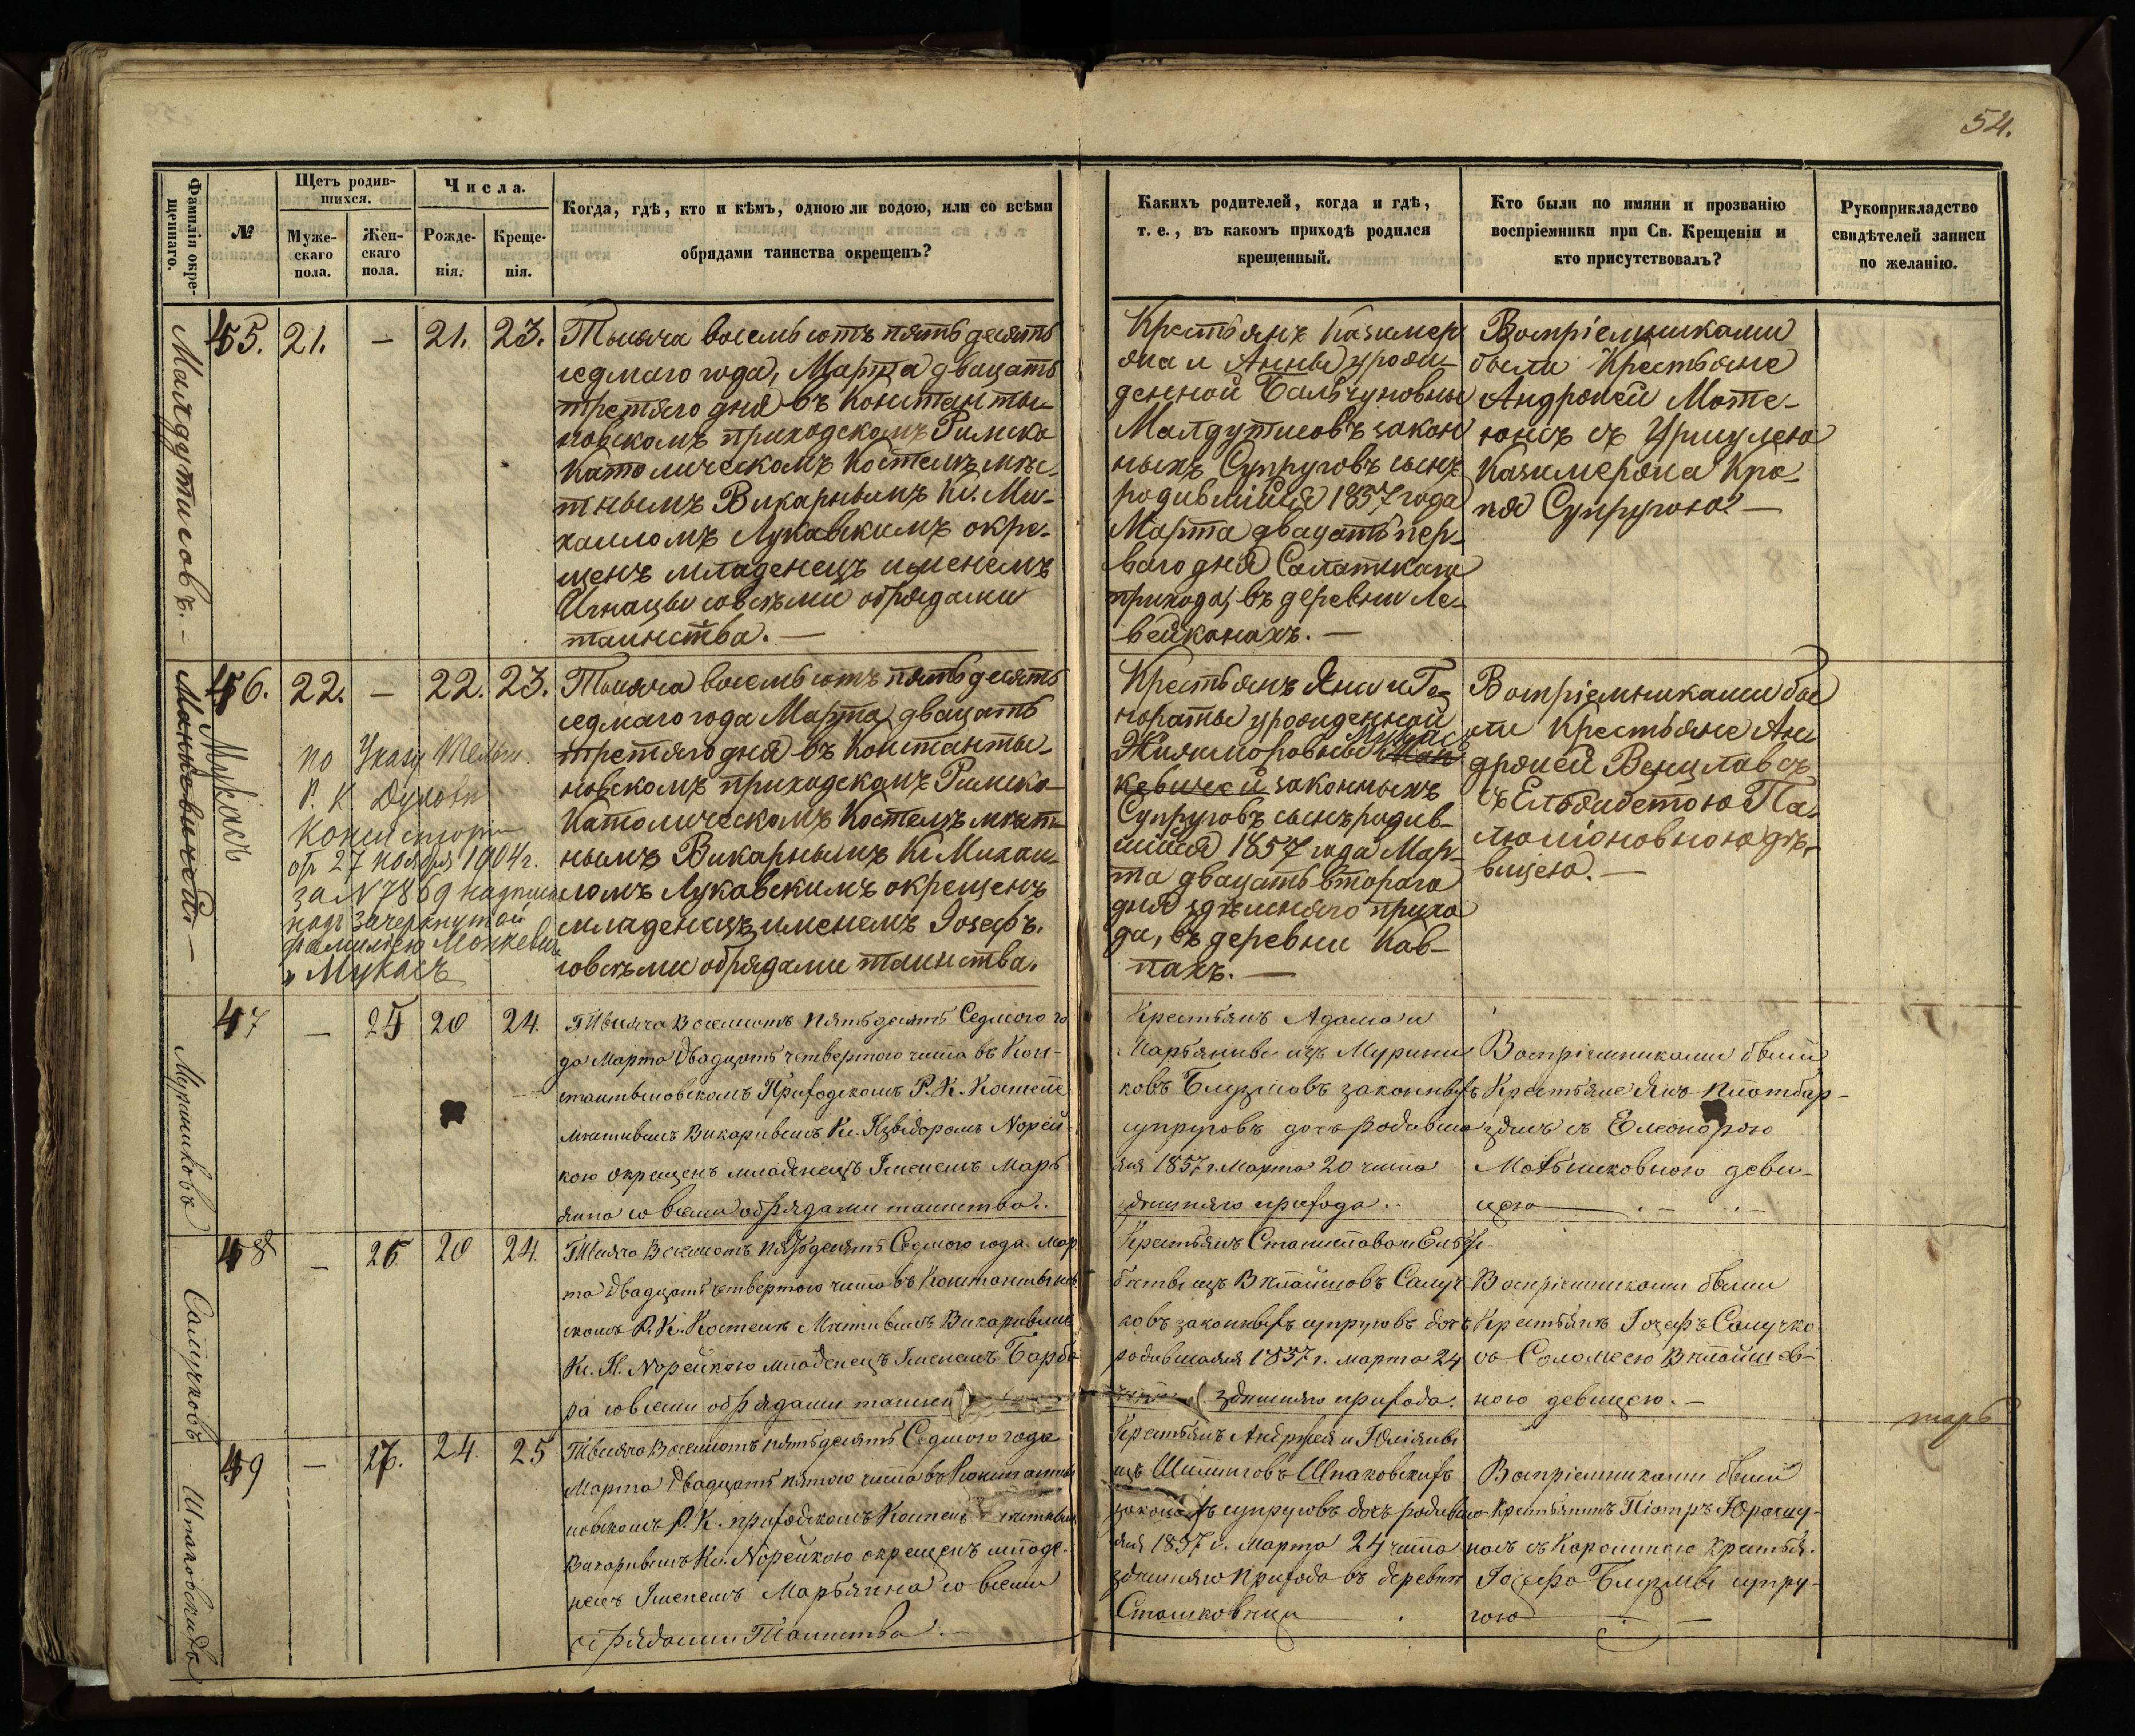 54.
Фамилія окре-
щеннаго.
№
Щетъ родив-
шихся.
Муже-
скаго
пола.
Жен-
скаго
пола.
Числа.
Рожде-
нія.
Креще-
нія.
Когда, гдѣ, кто и кѣмъ, одною ли водою, или со всѣми
обрядами таинства окрещенъ?
Какихъ родителей, когда и гдѣ,
т. е., въ какомъ приходѣ родился
крещенный.
Кто были по имяни и прозванію
воспріемники при Св. Крещеніи и
кто присутствовалъ?
Рукоприкладство
свидѣтелей записи
по желанію.
Малдутисовъ. –
45. 21. – 21. 23.
Тысяча восемьсотъ пятьдесятъ
седмаго года, Марта двацать
третяго дня въ Константы-
новскомъ приходскомъ Римско
Католическомъ Костелѣ мѣс-
тнымъ Викарнымъ Кс. Ми-
хаиломъ Лукавскимъ окре-
щенъ младенецъ именемъ
Игнацы совсѣми обрядами
таинства. –
Крестьянъ Казимер
яна и Анны урожи-
денной Бальчуновны
Малдутисовъ закон
ныхъ Супруговъ сынъ
родившійся 1857 года
Марта двацать пер-
ваго дня Салатскаго
прихода, въ деревни Ле-
вейканахъ. –
Воспріемниками
были Крестьяне
Андржей Мате-
юнсъ съ Уршулею
Казимержа Кра-
ня Супругою –
Монкевичовъ –
Мукасъ
46. 22. – 22. 23.
по Указу Тельш.
Р. К. Духовн
Консистори
от 27 ноября 1904 г.
за N 7869 надписа
надъ зачеркнутой
фамиліею Монкевичъ
"Мукасъ
Тысяча восемьсотъ пятьдесятъ
седмаго года Марта двацать
третяго дня въ Константы-
новскомъ приходскомъ Римско-
Католическомъ Костелѣ мѣст-
нымъ Викарнымъ Кс Михаи-
ломъ Лукавскимъ окрещенъ
младенецъ именемъ Іозефъ.
совсѣми обрядами таинства.
Крестьянъ Яна и Го
нораты урожденной
Мукасъ
законныхъ
Супруговъ сынъ родив-
шійся 1857 года Мар-
та двацать втораго
дня здѣшняго прихо
да, въ деревни Кав-
пахъ. –
Воспріемниками бы
ли Крестьяне Ан
држей Венцлавсъ
съ Ельжбетою Па-
люліоновною дѣ-
вицею. –
Муринниковъ
47 – 25 20 24.
Тысяча Восемсотъ пятьдесятъ Седмого го
да Марта двадцать четвертого числа въ Кон-
стантыновскомъ Приходскомъ Р. К. Костеле
мѣстнымъ Викарнымъ Кс. Изыдоромъ Норей-
кою окрещенъ младенецъ Іменемъ Марь
яна со всеми обрядами таинства..
Крестьянъ Адама и
Марьянны изъ Мурини
ковъ Блузмовъ законныхъ
супруговъ дочь родивша
яся 1857 г. Марта 20 числа
здешняго прихода.
Воспріемниками были
Крестьяне Янъ Плотбар-
здисъ съ Елеонорою
Матьшковною деви-
цею
Самучковъ
48 – 26 20 24.
Тысяча Восемсотъ пятьдесятъ Седмого года Мар
та двадцать четвертого числа въ Константынов
скомъ Р. К. Костеле Мѣстнымъ Викарнымъ
Кс. И. Норейкою младенецъ Іменемъ Барба
ра со всеми обрядами таинс
Крестьянъ Станислава и Ельж-
беты изъ Вклайшовъ Самуч
ковъ законныхъ супруговъ дочь
родившаяся 1857 г. марта 24
здешняго прихода.
Воспріемниками были
Крестьянъ Іозефъ Самучко
съ Саломеею Вклайшев-
ною девицею. –
марь
Шпаковскихъ
49 – 27. 24. 25
Тысяча Восемсотъ пятьдесятъ Седмого года
Марта двадцать пятого числа въ Константы
новскомъ Р. К. приходскомъ Костеле мѣстным
Викарнымъ Кс. Норейкою окрещенъ младе-
нецъ Іменемъ Марьянна со всеми
обрядами Таинства. –
Крестьянъ Андржея и Юліяны
изъ Шилинговъ Шпаковскихъ
супруговъ дочь родивша
яся 1857 г. Марта 24 числа
здешняго прихода въ деревни
Сташковица
Воспріемниками были
Крестьянинъ Піотръ Юрагиу-
насъ съ Каролиною Крестья.
Іозефа Блузмы супру-
гою –